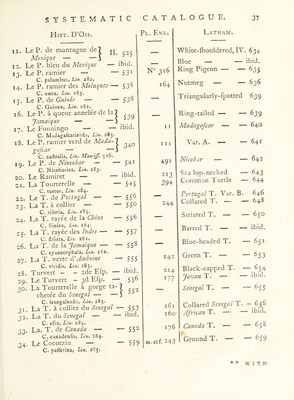 SYSTEMATIC CATALOGUE. 37
HIST. D'OIS. PL. ENL. LATHAM.
11. Le P. de montagne de Mexique — — } II. 525 White-shouldered, IV. 634
12. Le P. bleu du Mexique — ibid. Blue — — ibid.
13. Le P. ramier — — 531 N° 316 Ring Pigeon — — 635
C. palumbus, Lin. 282.
14. Le P. ramier des Moluques — 538 164 Nutmeg — — 636
C. ænea, Lin. 283.
15. Le P. de Guinée — — 538 Triangularly-spotted 639
C. Guinea, Lin. 282.
16. Le P. à queue annelée de la Jamaïque — — } 539 Ring-tailed — — 639
17. Le Founingo — — ibid. 11 Madagascar — — 640
C. Madagascariensis, Lin. 283.
18. Le P. ramier verd de Madagascar — — } 340 111 Var. A. — — 641
C. australis, Lin. Mantiss. 526.
19. Le P. de Nincobar — — 541 491 Nicobar — — 642
C. Nicobarica, Lin. 283.
20. Le Ramiret — — ibid. 213 Sea lop-necked — 643
21. La Tourterelle — — 545 394 Common Turtle — 644
C. turtur, Lin. 284.
22. Le T. de Portugal — — 556 Portugal T. Var. B. 646
23. La T. à collier — — 550 244 Collared T. — — 648
C. risoria, Lin. 285.
24. La T. rayée de la Chine — 556 Striated T. — — 650
C. Sinica, Lin. 284.
25. La T. rayée des Indes — — 557 Barred T. — — ibid.
C. striata, Lin. 282.
26. La T. de la Jamaïque — — 558 Blue-headed T. — 651
C. cyanocephala, Lin. 282.
27. La T. verte d'Amboine — 555 142 Green T. — — 653
C. viridis, Lin. 283.
28. Turvert — — 2de Esp. — ibid. 214 Black-capped T. — 654
29. Le Turvert — 3d Esp. — 556 177 Javan T. — — ibid.
30. La Tourterelle à gorge tachetée du Senegal — } 552 Senegal T. — — 655
C. senegalensis, Lin. 283.
31. La T. à collier du Senegal — 553 161 Collared Senegal T. — 656
32. La T. du Senegal — — ibid. 160 African T. — — ibid.
C. afra, Lin. 284.
33. La T. de Canada — — 552 176 Canada T. — — 658
C. canadensis, Lin. 284.
34. Le Cocotzin — — 559 m. et f. 243 Ground T. — — 659
C. passerina, Lin. 285.
** WITH